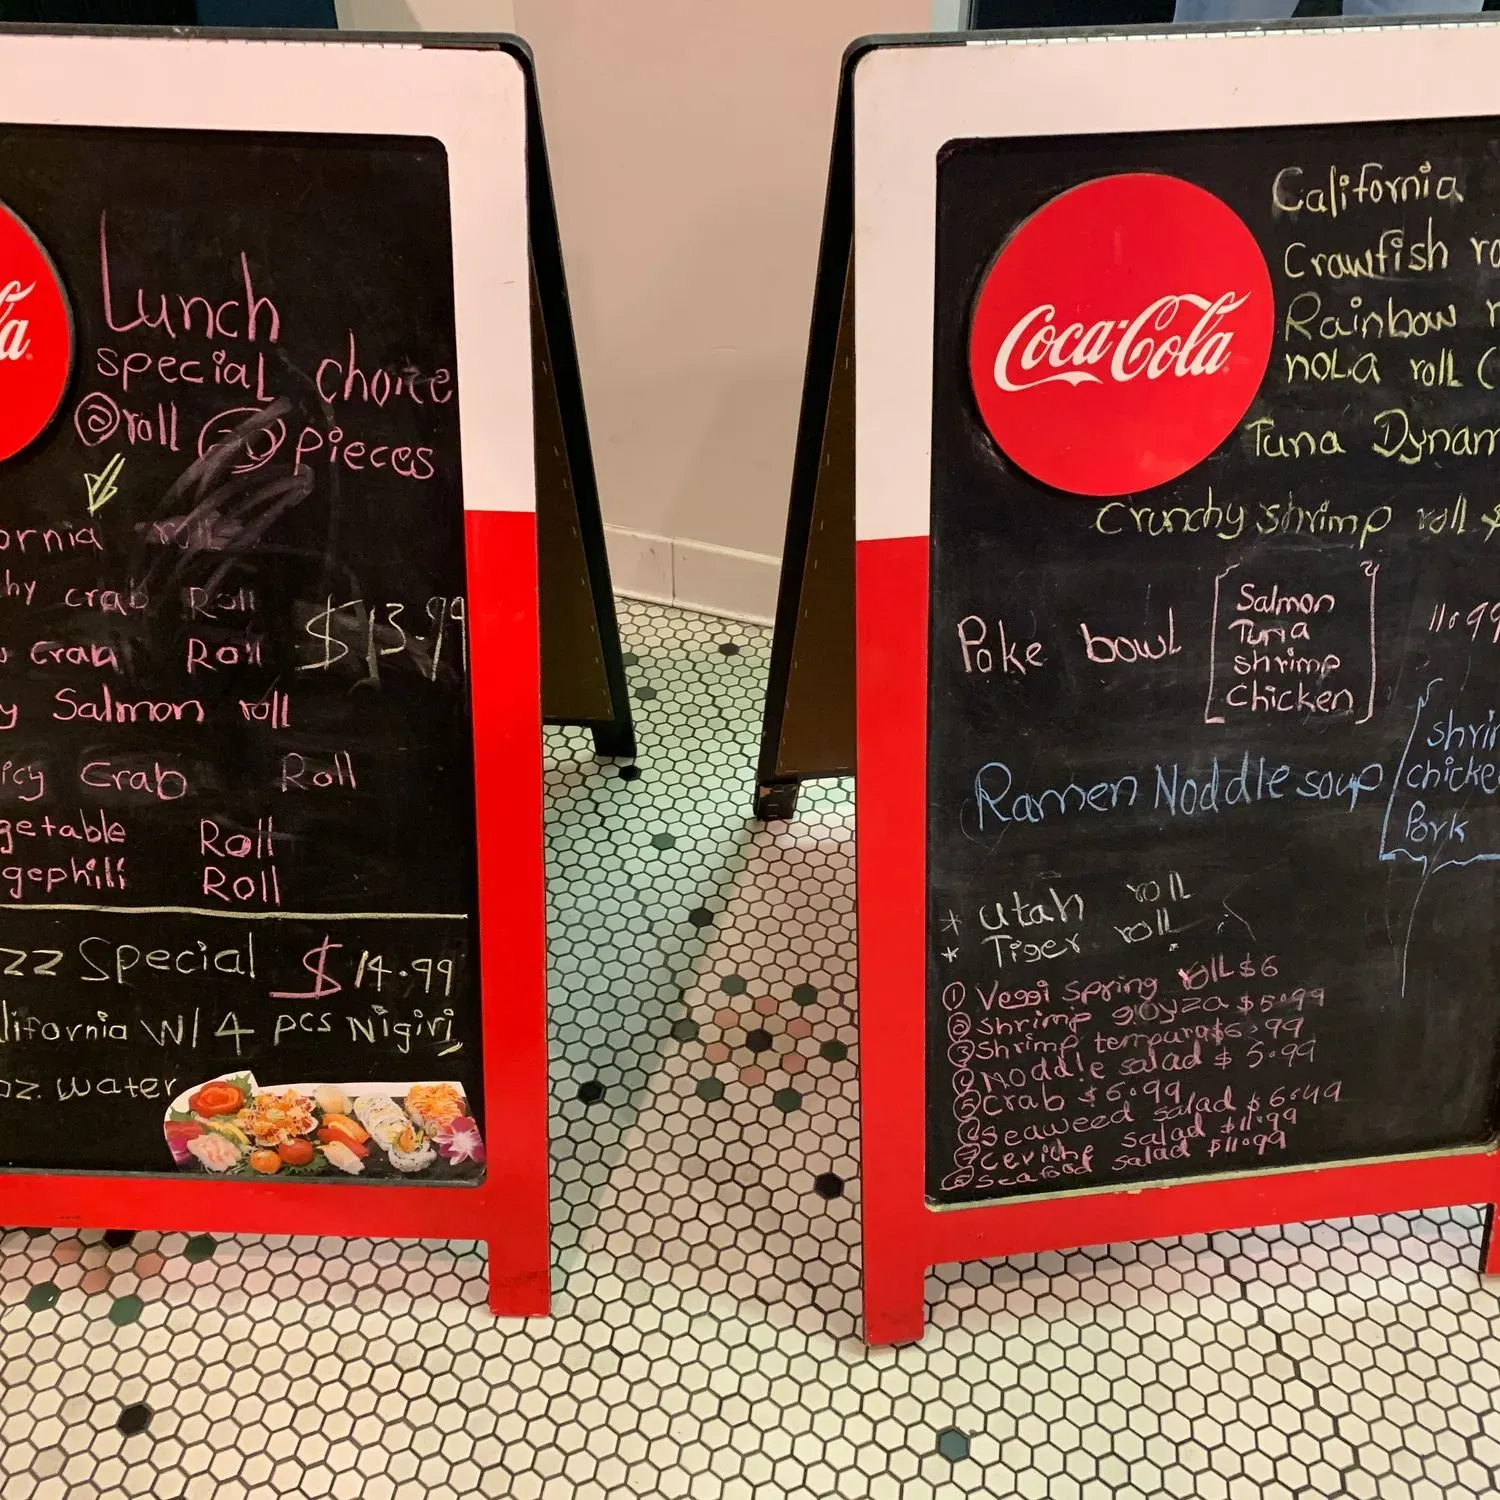 Lunch
special choice
② roll 20 pieces
ornia roll
hy crab Roll
$13.99
Crab Roll
y Salmon roll
icy Crab Roll
getable Roll
gephili Roll
zz Special $14.99
lifornia W/ 4 pcs Nigiri
oz. water
Coca-Cola
California
Crawfish ro
Rainbow r
NOLA roll (
Tuna Dynam
Crunchy shrimp roll $
Poke bowl
Salmon
Tuna
shrimp
Chicken
11.99
Ramen Noddle soup
shrim
chicke
Pork
* Utah roll
* Tiger roll
① Veggi spring roll $6
② Shrimp goyza $5.99
③ Shrimp tempura $6.99
④ Noddle salad $5.99
⑤ Crab $6.99
⑥ seaweed salad $6.49
⑦ ceviche salad $11.99
⑧ seafood salad $11.99